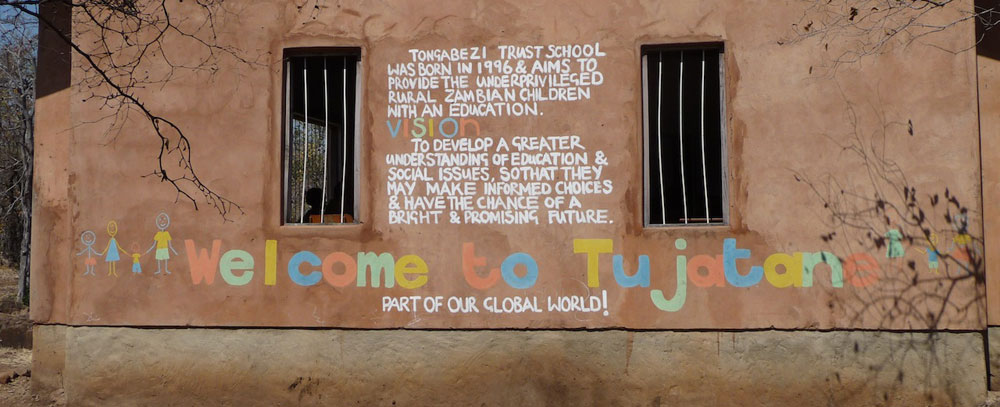 TONGABEZI TRUST SCHOOL
WAS BORN IN 1996 & AIMS TO
PROVIDE THE UNDERPRIVILEGED
RURAL ZAMBIAN CHILDREN
WITH AN EDUCATION.
vision
TO DEVELOP A GREATER
UNDERSTANDING OF EDUCATION &
SOCIAL ISSUES, SO THAT THEY
MAY MAKE INFORMED CHOICES
& HAVE THE CHANCE OF A
BRIGHT & PROMISING FUTURE.
Welcome to Tujatane
PART OF OUR GLOBAL WORLD!